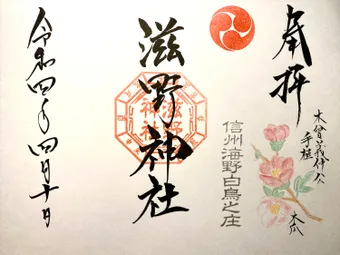 奉拝
木曽義仲公
手植
木瓜
信州海野白鳥之庄
滋野神社
滋野
神社
令和四年四月十日